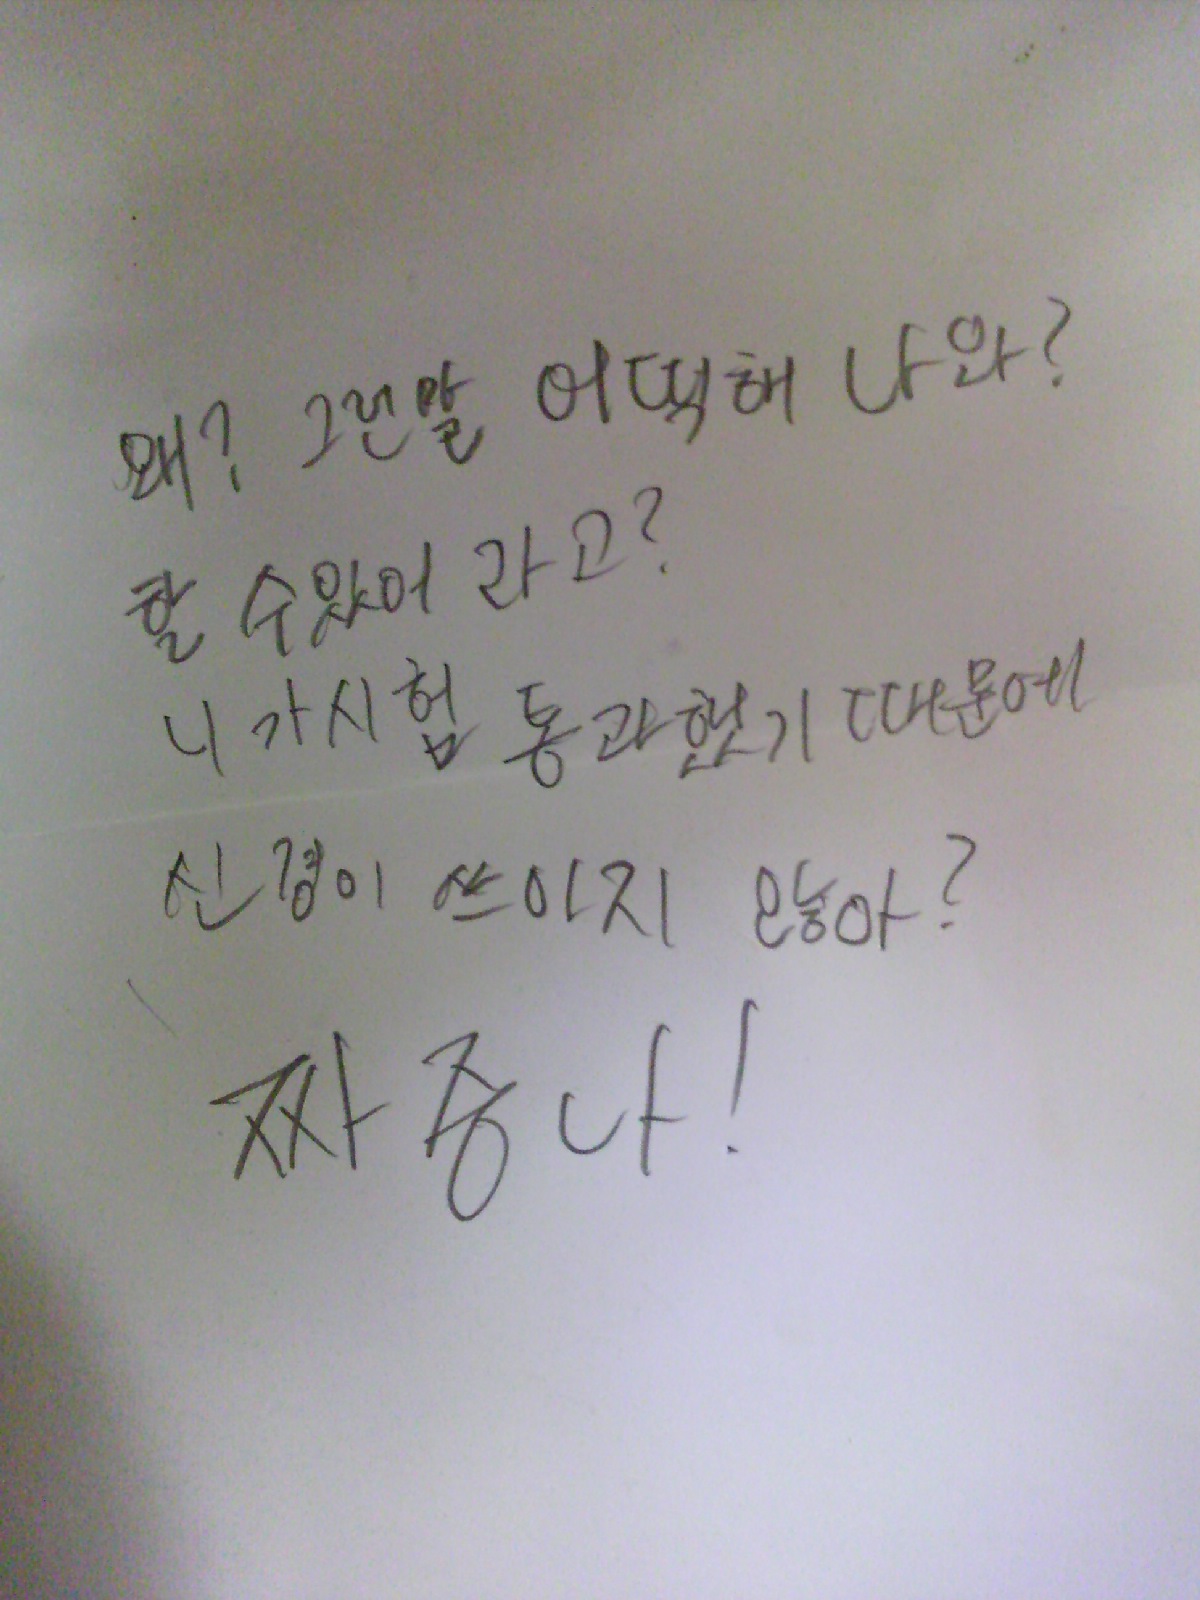 왜? 그런말 어떡해 나와?
할 수있어 라고?
니가시험 통과했기 때문에
신경이 쓰이지 않아?
짜증나!